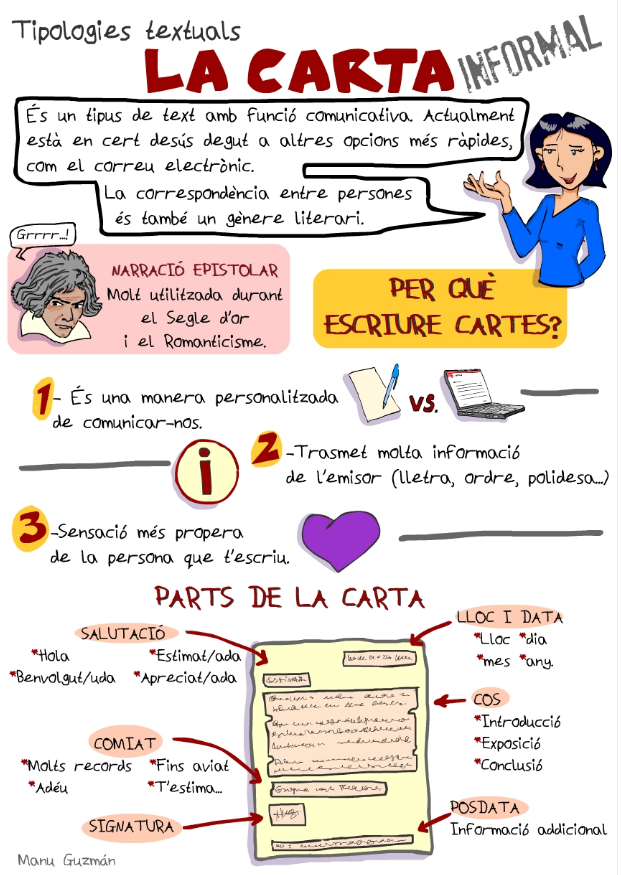 Tipologies textuals
LA CARTA INFORMAL
És un tipus de text amb funció comunicativa. Actualment
està en cert desús degut a altres opcions més ràpides,
com el correu electrònic.
La correspondència entre persones
és també un gènere literari.
Grrrr...!
NARRACIÓ EPISTOLAR
Molt utilitzada durant
el Segle d'or
i el Romanticisme.
PER QUÈ
ESCRIURE CARTES?
1 - És una manera personalitzada
de comunicar-nos.
VS.
i
2 -Trasmet molta informació
de l'emisor (lletra, ordre, polidesa...)
3 -Sensació més propera
de la persona que t'escriu.
PARTS DE LA CARTA
SALUTACIÓ
*Hola *Estimat/ada
*Benvolgut/uda *Apreciat/ada
LLOC I DATA
*Lloc *dia
*mes *any.
COS
*Introducció
*Exposició
*Conclusió
COMIAT
*Molts records *Fins aviat
*Adéu *T'estima...
SIGNATURA
POSDATA
Informació addicional
Manu Guzmán